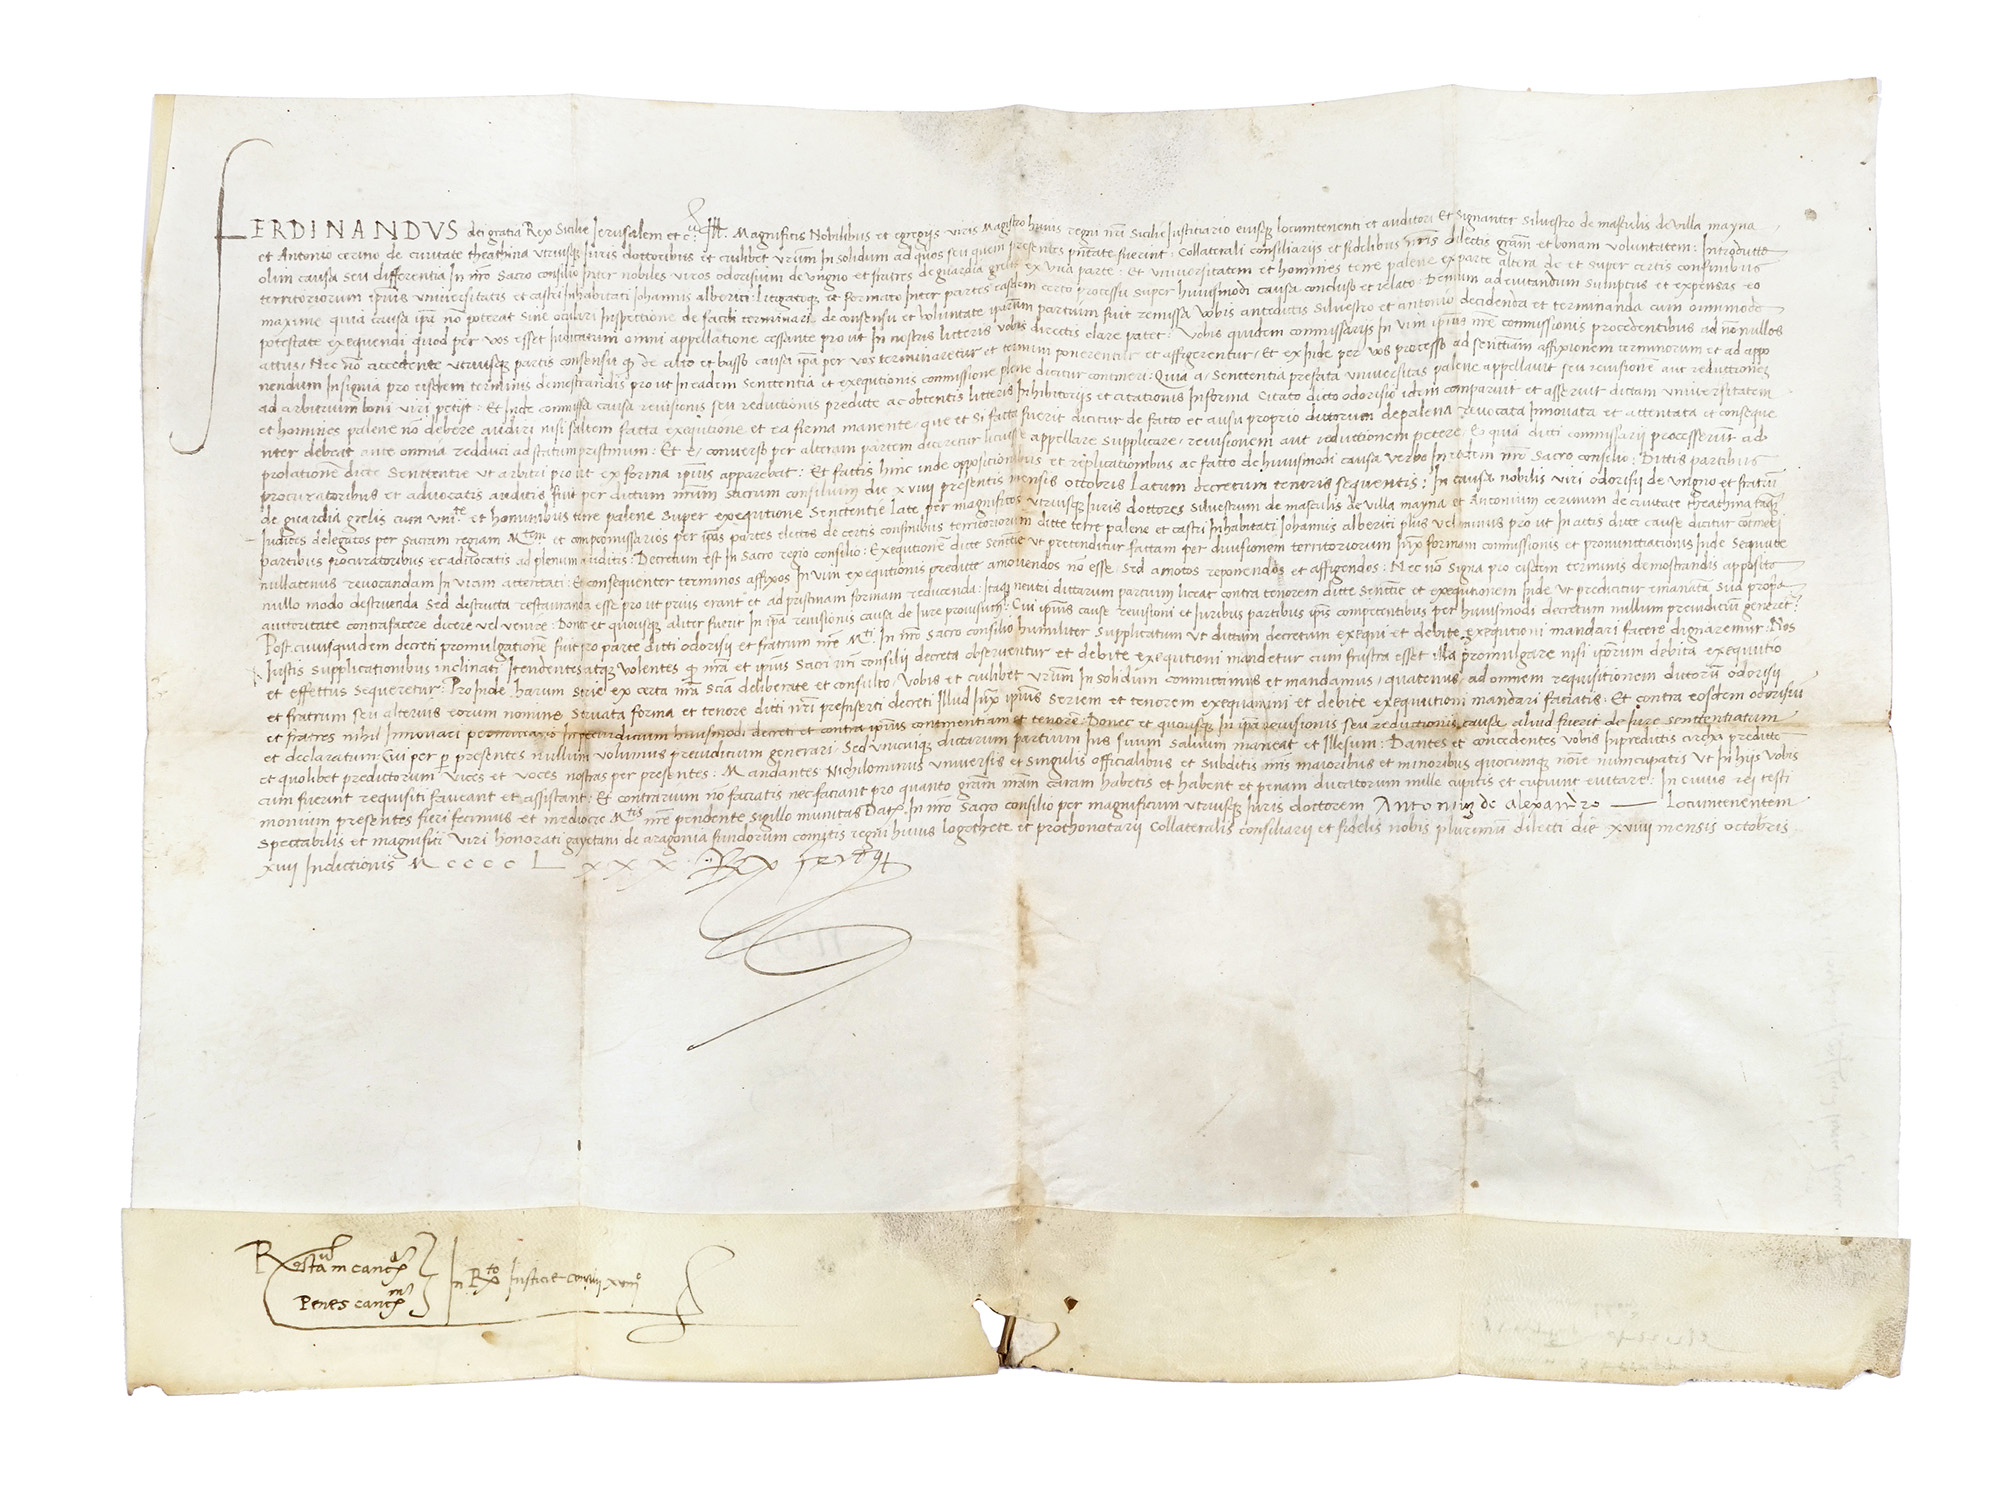 FERDINANDVS dei gratia Rex Sicilie Jerusalem et c. Magnificis Nobilibus et egregijs viris Magistro huius regni nri Sicilie Justitiario eiusq locumtenenti et auditori Et signanter Silvestro de masculis de villa mayna
et Antonio cerino de civitate theathina utriusq Juris dottoribus et cuilibet vrum in solidum ad quos seu quem presentes pntate fuerint Collaterali consiliarijs et fidelibus nris dilectis gram et bonam voluntatem : Introdutta
olim causa seu differentia In nro Sacro consilio Inter nobiles viros odorisium de ungno et fratres de guardia grelis ex una parte : Et universitatem et homines terre palene ex parte altera de et super certis confinibus
territoriorum ipius universitatis et castri Inhabitati Johannis alberici : Litigatoq et formato Inter partes easdem certo processu super huiusmodi causa concluso et relato : Demum ad evitandum sumptus et expensas eo
maxime quia causa ipa non poterat sine oculari Inspectione de facili terminari de consensu et voluntate iparum partium fuit remissa vobis antedictis Silvestro et antonio decidenda et terminanda cum omnimode
potestate exequendi quod per vos esset Iudicatum omni appellatione cessante prout in nostris litteris vobis directis clare patet : vobis quidem commissarijs In vim ipius nre commissionis procedentibus ad nonnullos
attus / Nec non accedente utriusq partis consensu q de alto et basso causa ipa per vos terminaretur et termini ponerentur et affigerentur / Et ex inde per vos processo ad sententiam affixionem terminorum et ad appo
nendum Insignia pro eisdem terminis demostrandis prout In eadem Senttentia et exequtionis commissione plene dicitur contineri : Quia a Senttentia prefata universitas palene appellavit seu revisionem aut reductionem
ad arbitrium boni viri petijt : Et Inde commissa causa revisionis seu reductionis predicte ac obtentis litteris Inhibitorijs et citationis In forma Citato dicto odorisio idem comparuit et asseruit dictam universitatem
et homines palene non debere audiri nisi saltem fatta exequtione et ea firma manente que et si fatta fuerit dicitur de fatto et ausu proprio dictorum de palena revocata Innovata et attentata et conseque
nter debeat ante omnia redduci ad statum pristinum : Et e converso per alteram partem diceretur licuisse appellare supplicare / revisionem aut reductionem petere / Eo quia ditti commissarii processerunt ad
prolationem dicte Senttentie ut arbitri prout ex forma ipius apparebat : Et fattis hinc inde oppositionibus et replicationibus ac fatto de huiusmodi causa verbo In eodem nro Sacro consilio : Dittis partibus
procuratoribus et advocatis auditis fuit per dictum nrum sacrum consilium die xviiij presentis mensis ottobris Latum decretum tenoris sequentis : In causa nobilis viri odorisii de ungno et fratrum
de guardia grelis cum unite et hominibus terre palene super exequtione Senttentie late per magnificos utriusq Iuris dottores Silvestrum de masculis de villa mayna et Antonium cerinum de civitate theathina tanq
Iudices delegatos per sacram regiam Mtem et compromissarios per ipas partes electos de certis confinibus territoriorum ditte terre palene et castri Inhabitati Johannis alberici plus vel minus prout In actis ditte cause dicitur contineri
partibus procuratoribus et advocatis ad plenum auditis : Decretum est In Sacro regio consilio : Exequtionem dicte Sententie ut pretenditur fattam per divisionem territoriorum Iux formam commissionis et pronunctiationis Inde sequute
nullatenus revocandam In viam attentati : Et consequenter terminos affixos In vim exequtionis predicte amovendos non esse / Sed amotos reponendos et affigendos : Nec non signa pro eisdem terminis demostrandis apposita
nullo modo destruenda Sed destructa restauranda esse prout prius erant et ad pristinam formam reducenda : Itaq neutri dittarum partium liceat contra tenorem ditte Sententie et exequtionem Inde ut predicitur emanatam Sua propa
auttoritate contrafacere dicere vel venire : Donec et quousq aliter fuerit In ipa revisionis causa de Iure provisum : Cui ipius cause revisioni et Iuribus partibus ipis competentibus per huiusmodi decretum nullum preiudicium generetr
Post cuiusquidem decreti promulgationem fuit pro parte ditti odorisii et fratrum nre Mti In nro Sacro consilio humiliter supplicatum ut dictum decretum exequi et debite exequtioni mandari facere dignaremur : Nos
Iustis supplicationibus inclinati Itendentes atq volentes q nra et ipius Sacri nri consilii decreta observentur et debite exequtioni mandetur cum frustra esset illa promulgare nisi iporum debita exequutio
et effettus sequeretur : Proinde harum serie ex certa nra scia deliberate et consulto / vobis et cuilibet vrum In solidum committimus et mandamus / quatenus / ad omnem requisitionem dictorum odorisii
et fratrum seu alterius eorum nomine servata forma et tenore ditti nri preinserti decreti Illud Iux ipius seriem et tenorem exequamini et debite exequutioni mandari faciatis : Et contra eosdem odorisium
et fratres nihil Innovari permictatis In preiudicium huiusmodi decreti et contra ipius continentiam et tenorem Donec et quousq In ipa revisionis seu reductionis causa aliud fuerit de Iure senttentiatum
et declaratum : Cui per presentes nullum volumus preiudicium generari / Sed unicuiq dictarum partium Ius suum salvum maneat et Illesum : Dantes et concedentes vobis In predictis circha predicta
et quolibet predictorum vices et voces nostras per presentes : Mandantes Nichilominus universis et singulis officialibus et subditis nris maioribus et minoribus quocumq noie nuncupatis ut In hijs vobis
cum fuerint requisiti faveant et assistant : Et contrarium non faciatis nec faciant pro quanto gram nram caram habetis et habent et penam ducatorum mille cupitis et cupiunt evitare : In cuius rei testi
monium presentes fieri fecimus et mediocre Mtis nre pendente sigillo munitas Dat In nro Sacro consilio per magnificum utriusq Iuris dottorem Antonium de Alexandro — Locumtenentem
Spectabilis et magnifici viri honorati gayetani de aragonia fundorum comitis regni huius logothete et prothonotarii Collateralis consiliarii et fidelis nobis plurimum dilecti die xviiij mensis octobris
xiiij Indictionis M c c c c L x x x . Rex
In Rto Iusticie
Penes canc